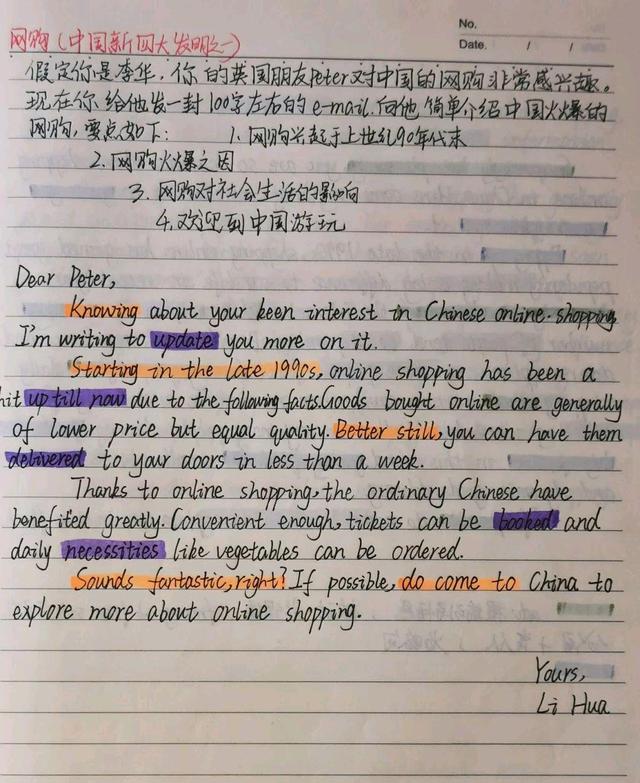 No.
Date. / /
网购(中国新四大发明之一)
假定你是李华,你的英国朋友Peter对中国的网购非常感兴趣。
现在你给他发一封100字左右的e-mail,向他简单介绍中国火爆的
网购,要点如下: 1.网购兴起于上世纪90年代末
2.网购火爆之因
3.网购对社会生活的影响
4.欢迎到中国游玩
Dear Peter,
Knowing about your keen interest in Chinese online-shopping
I'm writing to update you more on it.
Starting in the late 1990s, online shopping has been a
hit up till now due to the following facts. Goods bought online are generally
of lower price but equal quality. Better still, you can have them
delivered to your doors in less than a week.
Thanks to online shopping, the ordinary Chinese have
benefited greatly. Convenient enough, tickets can be booked and
daily necessities like vegetables can be ordered.
Sounds fantastic, right? If possible, do come to China to
explore more about online shopping.
Yours,
Li Hua